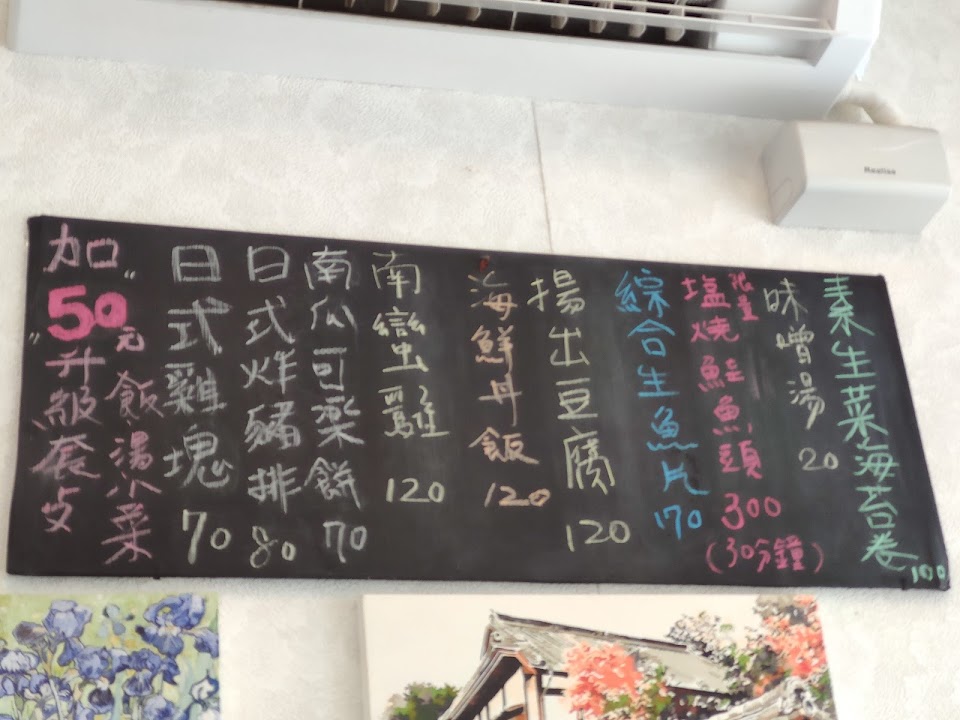 Realise
素生菜海苔卷 100
味噌湯 20
限量
塩燒鮭魚頭 300
(30分鐘)
綜合生魚片 170
揚出豆腐 120
海鮮丼飯 120
南蠻雞 120
南瓜可樂餅 70
日式炸豬排 80
日式雞塊 70
加"50"元
升級套攴
飯湯小菜